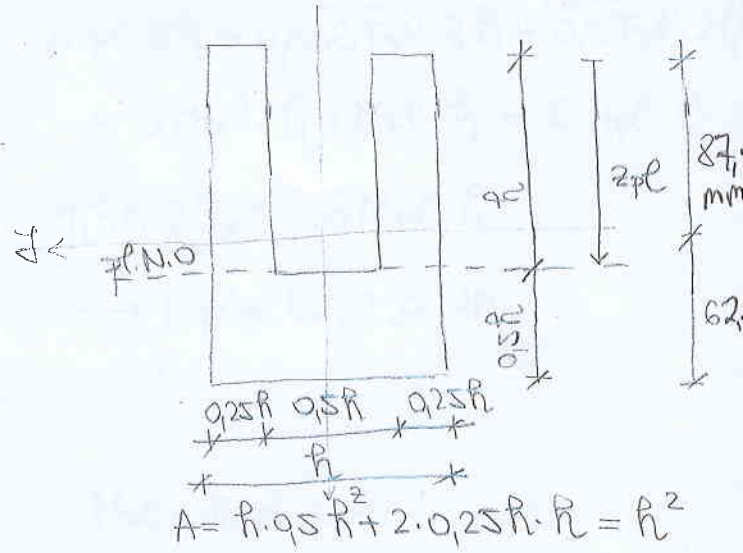 h
zpl
87,
mm
y
pl. N.O
0,5h
62,
0,25h 0,5h 0,25h
h
z
A = h·0,5h + 2·0,25h·h = h²